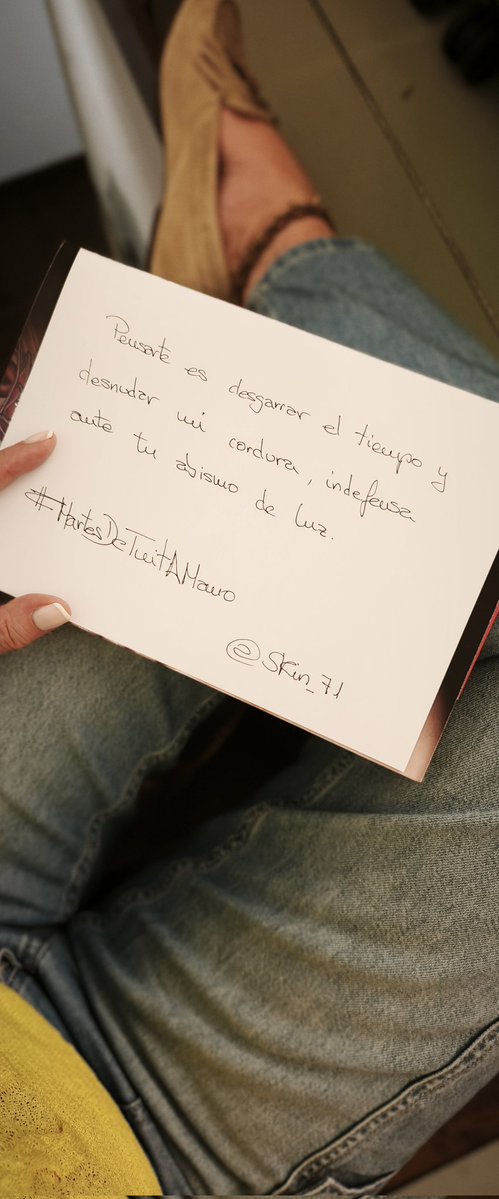 Pensarte es desgarrar el tiempo y
desnudar mi cordura, indefensa
ante tu abismo de luz.
#MartesDeTuitAMano
@Skin_71